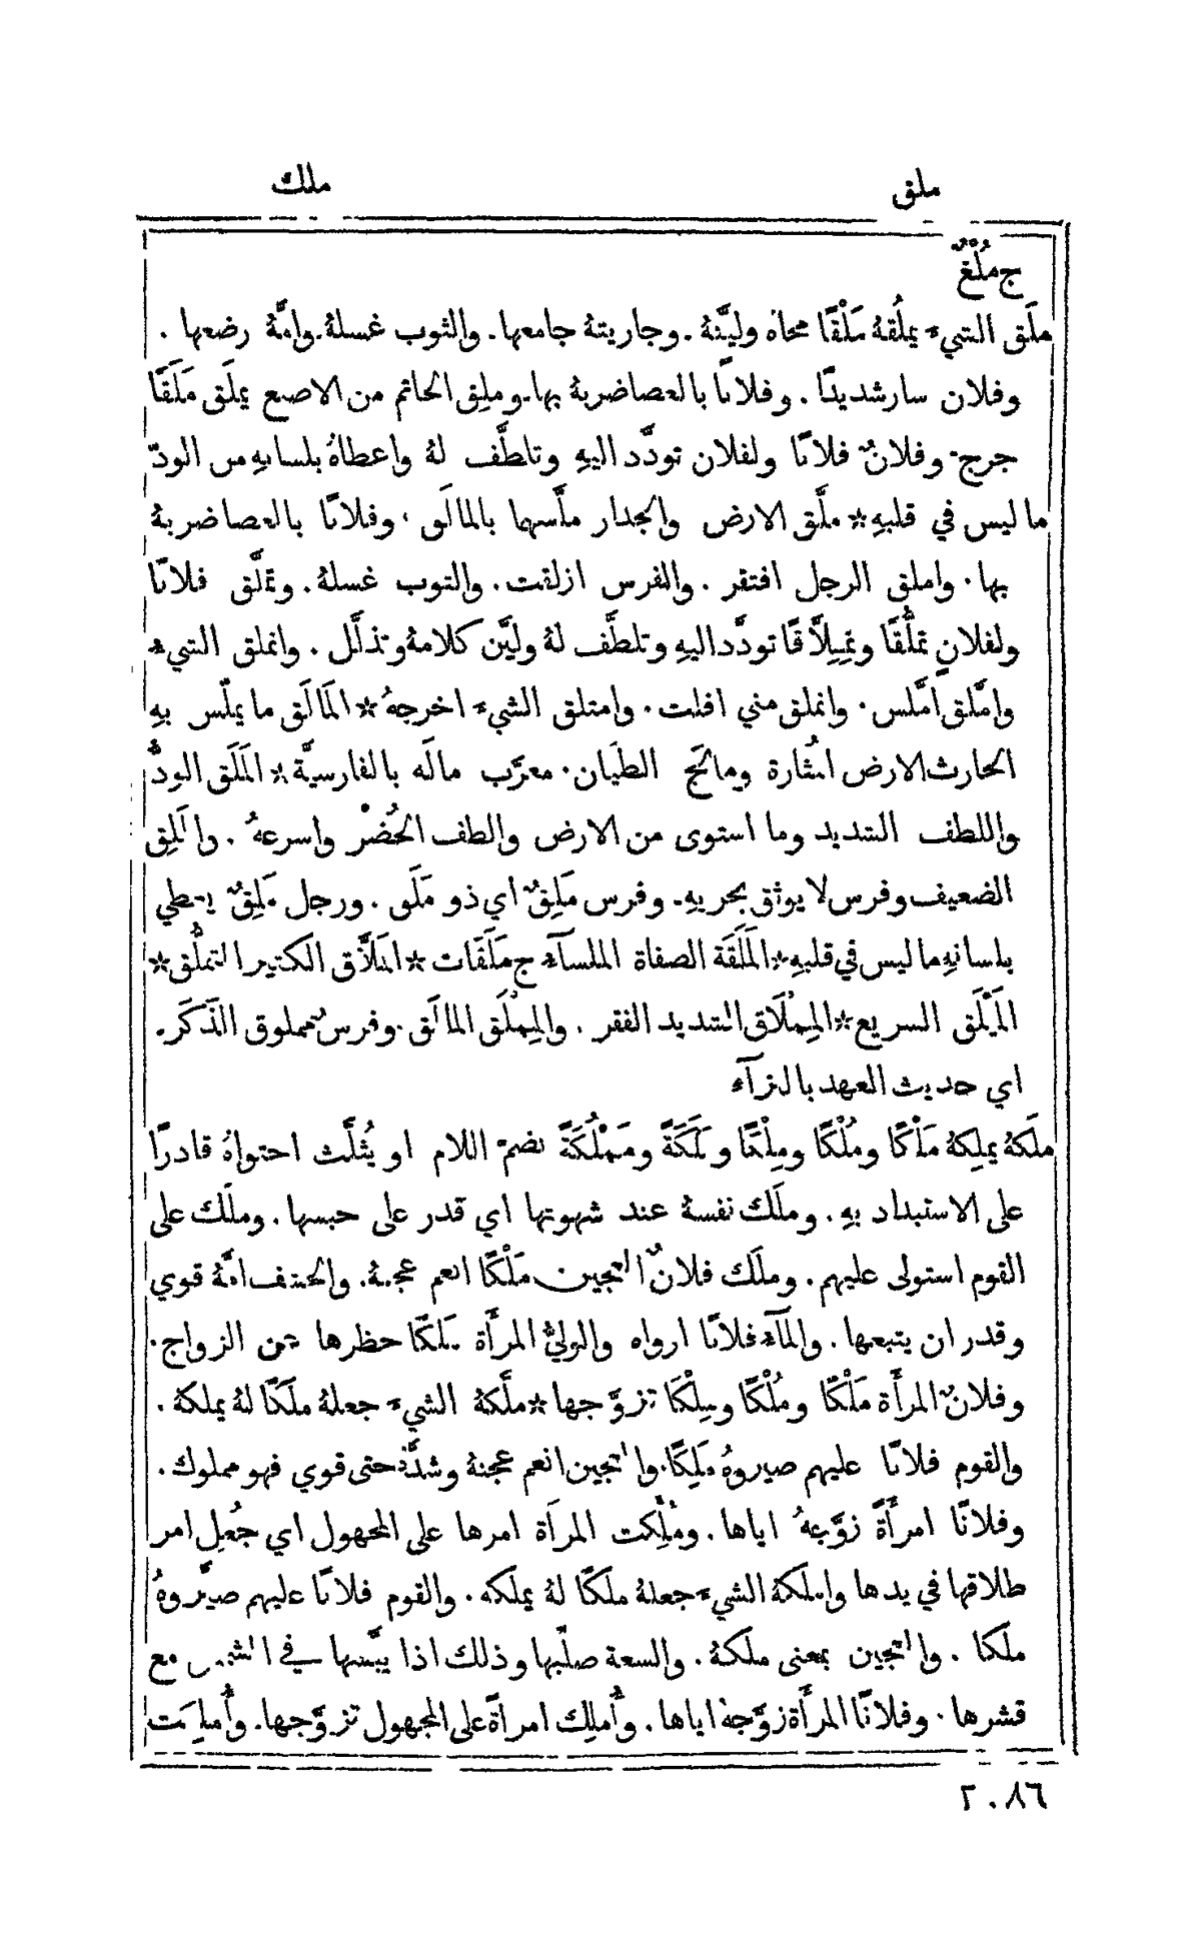 ملق
ملك
ج مُلْغٌ
ملَق الشيء يملُقهُ مَلْقًا محاه وليَّنهُ. وجاريتهُ جامعها. والثوب غسلهُ. وامَّهُ رضعها.
وفلان سار شديدًا. وفلانًا بالعصا ضربهُ بها. وملِق الخاتم من الاصبع يملَق مَلَقًا
جرج. وفلانٌ فلانًا ولفلان تودَّد اليهِ وتلطَّف لهُ واعطاهُ بلسانهِ من الودّ
ما ليس في قلبهِ * ملَّق الارض والجدار ملَّسها بالمالَق. وفلانًا بالعصا ضربهُ
بها. واملق الرجل افتقر. والفرس ازلقت. والثوب غسلهُ. وتملَّق فلانًا
ولفلانٍ تملُّقًا وتِمِلَّاقًا تودَّد اليهِ وتلطَّف لهُ وليَّن كلامهُ وتذلَّل. وانملق الشيء
وامَّلق امَّلس. وانملق مني افلت. وامتلق الشيء اخرجهُ * المَالَق ما يملّس بهِ
الحارث الارض المُثارة ومالَج الطيَان. معرَّب مالَه بالفارسيَّة * المَلَق الودُّ
واللطف الشديد وما استوى من الارض والطف الحُضْر واسرعهُ. والمَلِق
الضعيف وفرس لا يوثق بجريهِ. وفرس مَلِقٌ اي ذو مَلَق. ورجل مَلِقٌ يعطي
بلسانهِ ما ليس في قلبهِ * المَلَقَة الصفاة الملسآء ج مَلَقَات * المَلَّاق الكثير التملُّق *
المَيْلَق السريع * المِمْلَاق الشديد الفقر. والمِمْلَق المالَق. وفرس مملوق الذَكَر.
اي حديث العهد بالنزآء
ملَكهُ يملِكهُ مَلْكًا ومُلْكًا ومِلْكًا ومَلَكَةً ومَمْلُكَةً بضمّ اللام او يُثلَّث احتواهُ قادرًا
على الاستبداد بهِ. وملَك نفسهُ عند شهوتها اي قدر على حبسها. وملَك على
القوم استولى عليهم. وملَك فلانٌ العجين مَلْكًا انعم عجنهُ. والخشف امَّهُ قوي
وقدر ان يتبعها. والمآء فلانًا ارواه والوليُّ المرأَة مَلكًا حظرها من الزواج.
وفلانٌ المرأَة مَلْكًا ومُلْكًا ومِلْكًا تزوَّجها * ملَّكهُ الشيء جعلهُ ملَكًا لهُ يملكهُ.
والقوم فلانًا عليهم صيروهُ مَلِكًا. والعجين انعم عجنهُ وشدَّهُ حتى قوي فهو مملوك.
وفلانًا امرأَةً زوَّجهُ اياها. ومُلِّكت المرأَة امرها على المجهول اي جُعِل امر
طلاقها في يدها واملكهُ الشيء جعلهُ ملكًا لهُ يملكه. والقوم فلانًا عليهم صيَّروهُ
ملكا. والعجين بمعنى ملكهُ. والسعة صلّبها وذلك اذا يبَّسها في الشمس مع
قشرها. وفلانًا المرأَة زوَّجهُ اياها. وأُملِك امرأَةً على المجهول تزوَّجها. وأُملِكت
٢٠٨٦